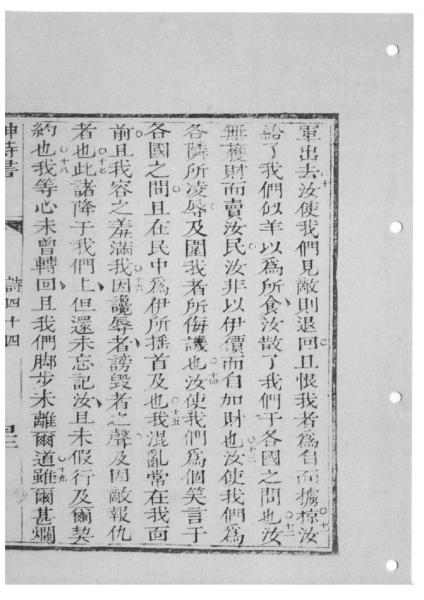 軍出去汝使我們見敵則退回且恨我者爲自而擄掠汝
給了我們似羊以爲所食汝散了我們于各國之間也汝
無獲財而賣汝民汝非以伊價而自加財也汝使我們爲
各隣所凌辱及圍我者所侮譏也汝使我們爲個笑言于
各國之間且在民中爲伊所搖首及也我混亂常在我面
前且我容之羞滿我因讒辱者謗毀者之聲及因敵報仇
者也此諸降于我們上但還未忘記汝且未假行及爾契
約也我等心未曾轉回且我們脚步未離爾道雖爾甚爛
神詩書
詩四十四
十
十一
十二
十三
十四
十五
十六
十七
十八
十九